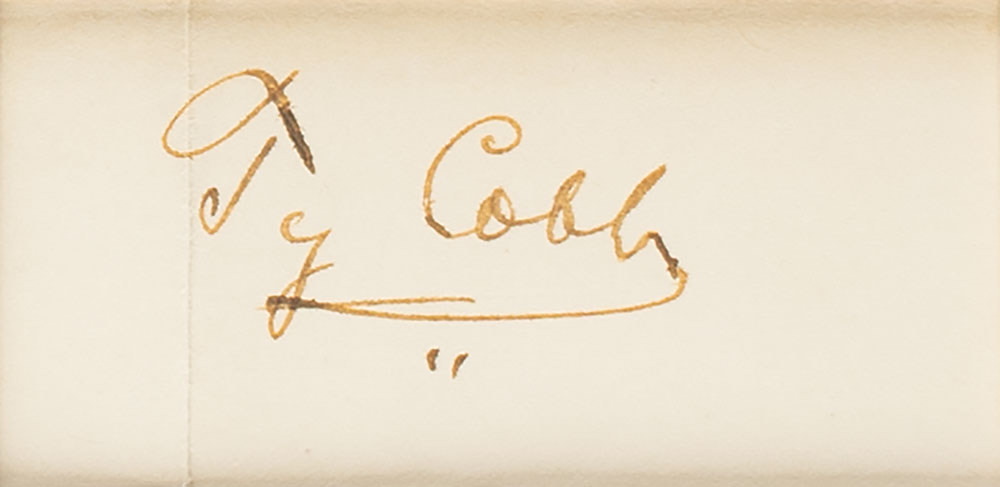 Ty Cobb
"